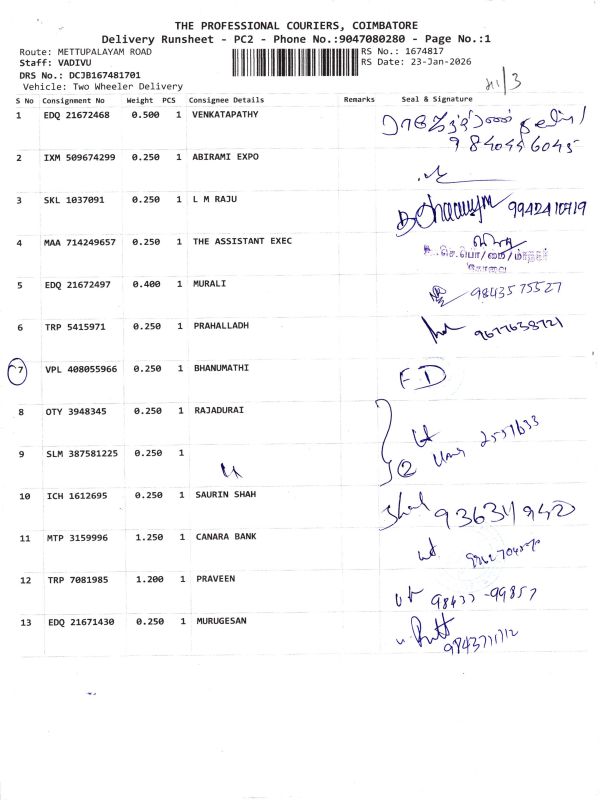 THE PROFESSIONAL COURIERS, COIMBATORE
Delivery Runsheet - PC2 - Phone No.:9047080280 - Page No.:1
Route: METTUPALAYAM ROAD RS No.: 1674817
Staff: VADIVU RS Date: 23-Jan-2026
DRS No.: DCJB167481701
Vehicle: Two Wheeler Delivery
S No Consignment No Weight PCS Consignee Details Remarks Seal & Signature
1 EDQ 21672468 0.500 1 VENKATAPATHY
2 IXM 509674299 0.250 1 ABIRAMI EXPO
3 SKL 1037091 0.250 1 L M RAJU 9942410719
4 MAA 714249657 0.250 1 THE ASSISTANT EXEC
கோவை
5 EDQ 21672497 0.400 1 MURALI 9843575527
6 TRP 5415971 0.250 1 PRAHALLADH 9677638721
7 VPL 408055966 0.250 1 BHANUMATHI FD
8 OTY 3948345 0.250 1 RAJADURAI
9 SLM 387581225 0.250 1
10 ICH 1612695 0.250 1 SAURIN SHAH
11 MTP 3159996 1.250 1 CANARA BANK
12 TRP 7081985 1.200 1 PRAVEEN 98433-99857
13 EDQ 21671430 0.250 1 MURUGESAN
9843711712